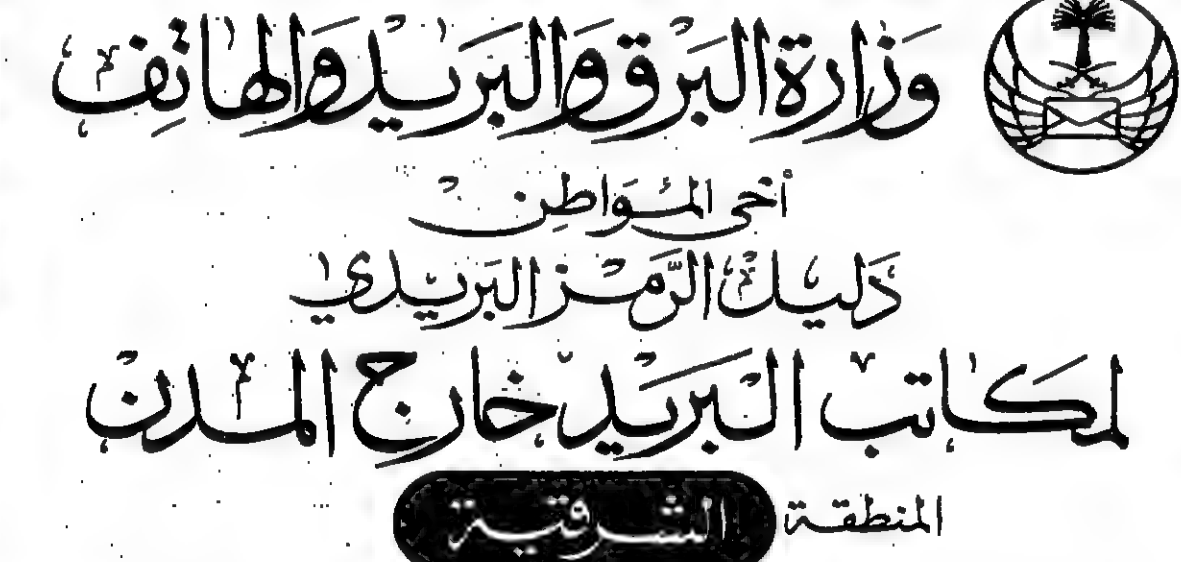 وزارة البرق والبريد والهاتف
أخي المواطن
دليل الرمز البريدي
لمكاتب البريد خارج المدن
المنطقة الشرقية